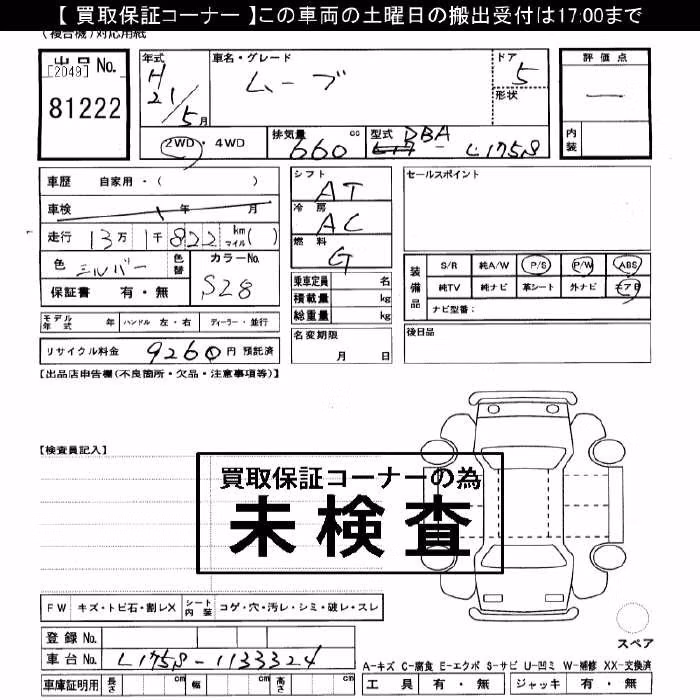 【 買取保証コーナー 】この車両の土曜日の搬出受付は17:00まで
(複合機)対応用紙
出品 No.
[2049]
81222
年式 H 21/5月
車名・グレード ムーブ
ドア 5
形状
評価点 —
内装
2WD・4WD
排気量 660 cc
型式 DBA - L175S
車歴 自家用・( )
車検 年 月
走行 13万1千822 km マイル( )
色 シルバー 色替
カラーNo. S28
保証書 有・無
シフト AT
冷房 AC
燃料 G
乗車定員 名
積載量 kg
総重量 kg
セールスポイント
装備品
S/R 純A/W P/S P/W ABS
純TV 純ナビ 革シート 外ナビ エアB
ナビ型番:
モデル年式 年 ハンドル 左・右 ディーラー・並行
リサイクル料金 9260 円 預託済
名変期限 月 日
後日品
【出品店申告欄(不良箇所・欠品・注意事項等)】
【検査員記入】
買取保証コーナーの為
未検査
FW キズ・トビ石・割レX シート内装 コゲ・穴・汚レ・シミ・破レ・スレ
登録 No.
車台 No. L175S-1133324
車庫証明用 長さ cm 幅 cm 高さ cm
スペア
A-キズ C-腐食 E-エクボ S-サビ U-凹ミ W-補修 XX-交換済
工具 有・無 ジャッキ 有・無